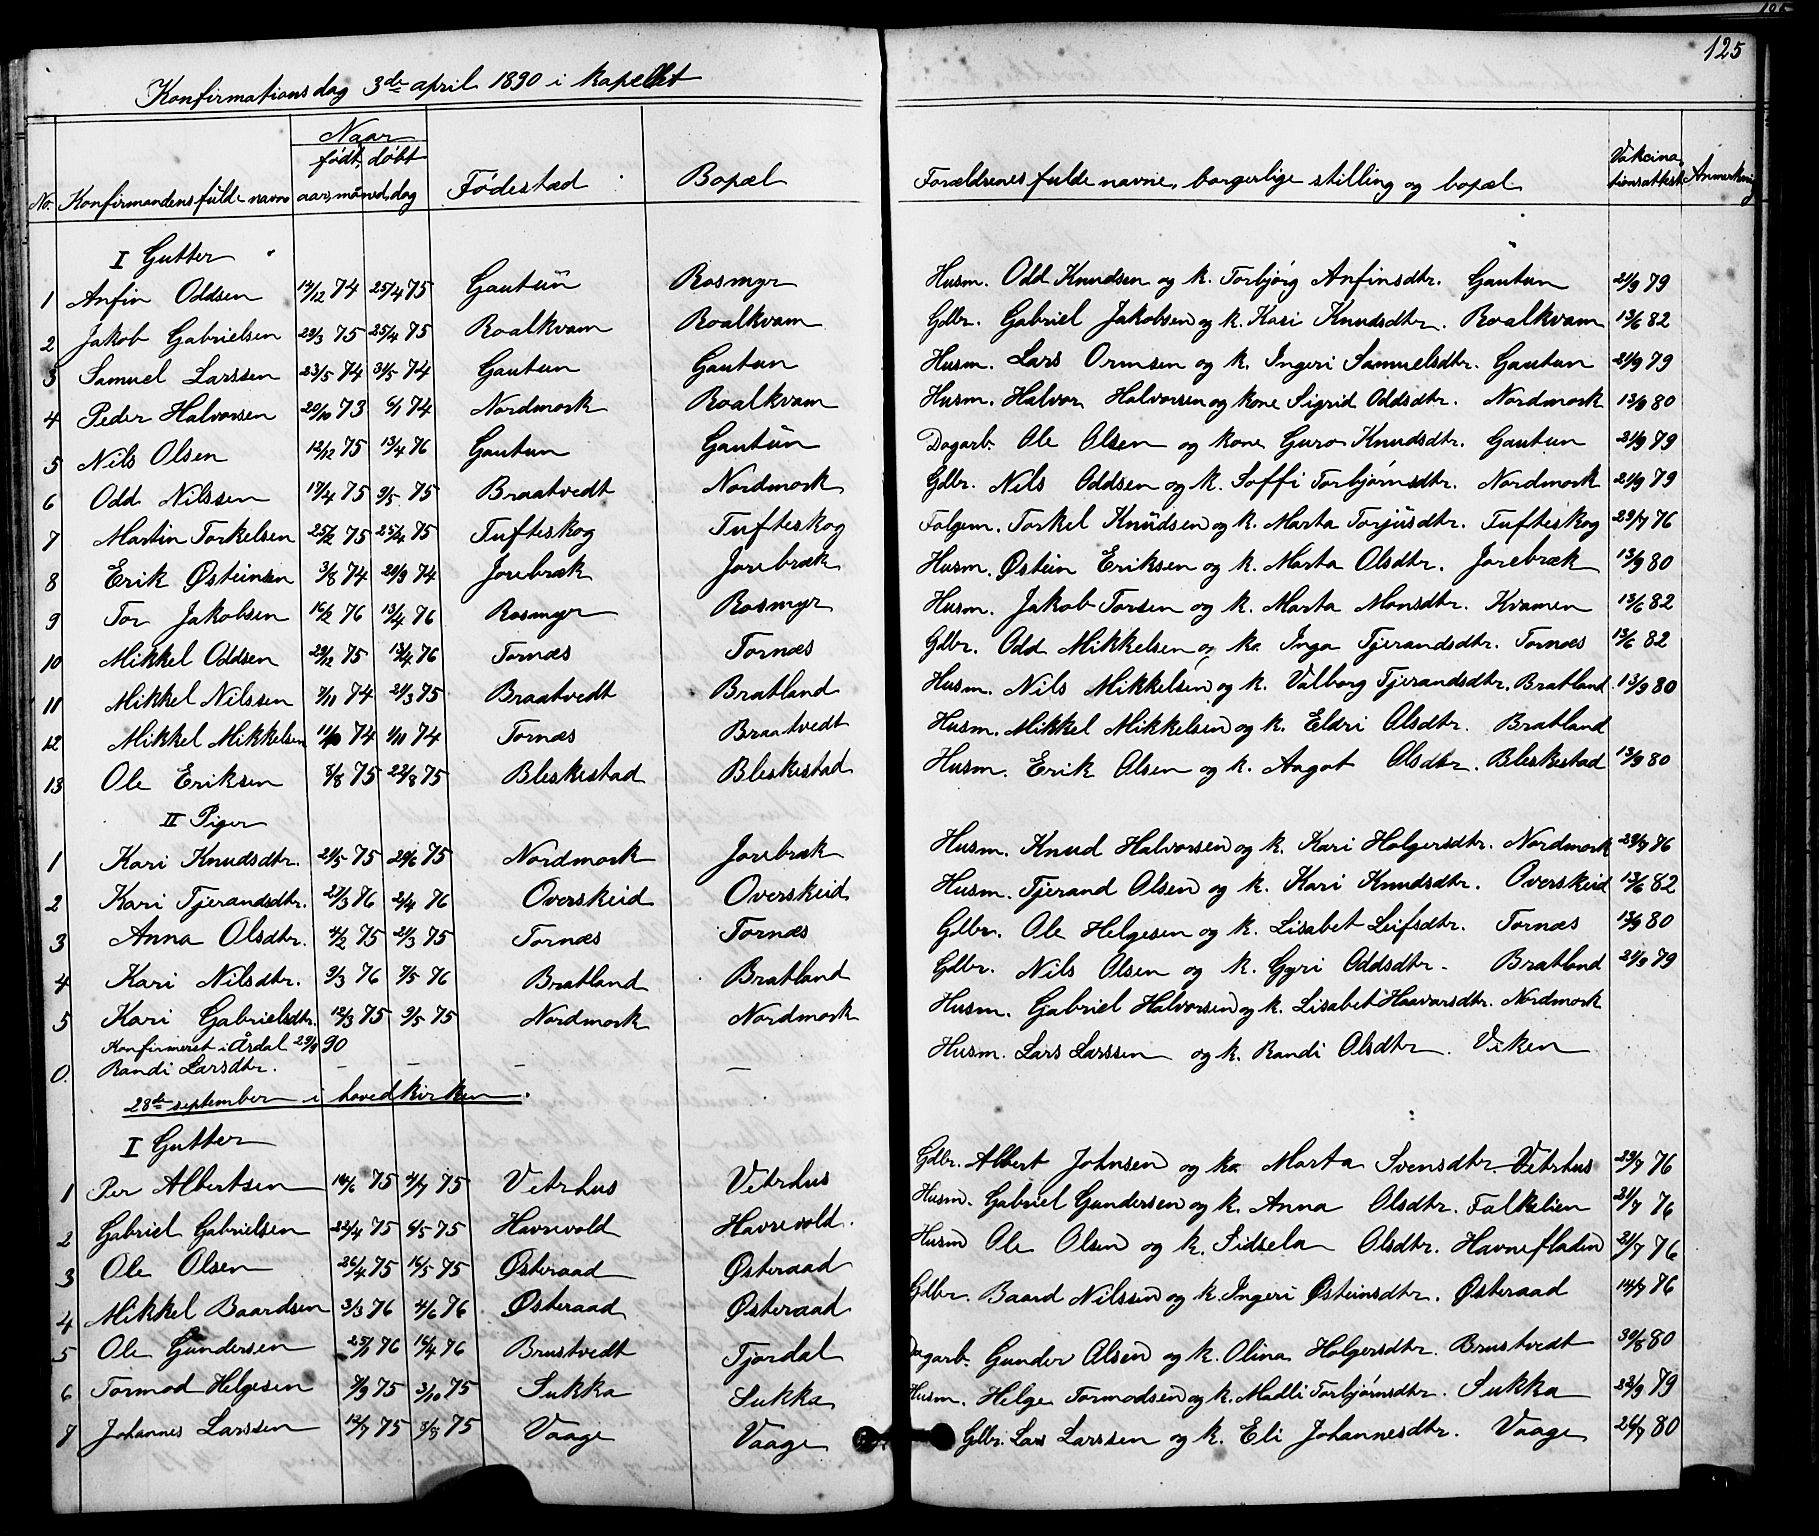 125
Konfirmationsdag 3de april 1890 i kapellet
No. Konfirmandens fulde navn Naar født, døbt aar, måned, dag Fødestad Bopæl Forældrenes fulde navne, borgerlige stilling og bopæl Vakcinationsattest Anmerkning
I Gutter
1 Anfin Oddsen 14/12 74 25/4 75 Gautun Rosmyr Husm. Odd Knudsen og k. Torbjørg Anfinsdtr. Gautun 21/9 79
2 Jakob Gabrielsen 23/3 75 25/4 75 Roalkvam Roalkvam Gdbr. Gabriel Jakobsen og k. Kari Knudsdtr. Roalkvam 13/6 82
3 Samuel Larssen 23/5 74 31/5 74 Gautun Gautun Husm. Lars Ormsen og k. Ingeri Samuelsdtr. Gautun 21/9 79
4 Peder Halvorsen 20/10 73 6/1 74 Nordmork Roalkvam Husm. Halvor Halvorsen og kone Sigrid Oddsdtr. Nordmork 13/9 80
5 Nils Olsen 12/12 75 13/4 76 Gautun Gautun Dagarb. Ole Olsen og kone Guro Knudsdtr. Gautun 21/9 79
6 Odd Nilssen 17/4 75 9/5 75 Braatvedt Nordmork Gdbr. Nils Oddsen og k. Soffi Torbjørnsdtr. Nordmork 21/9 79
7 Martin Torkelsen 25/2 75 25/4 75 Tufteskog Tufteskog Folgem. Torkel Knudsen og k. Marta Torjusdtr. Tufteskog 29/7 76
8 Erik Østeinsen 3/8 74 20/9 74 Jorebræk Jorebræk Husm. Østein Eriksen og k. Marta Olsdtr. Jorebræk 13/9 80
9 Tor Jakobsen 16/2 76 13/4 76 Rosmyr Rosmyr Husm. Jakob Torsen og k. Marta Monsdtr. Kvamen 13/6 82
10 Mikkel Oddsen 29/12 75 13/4 76 Tornæs Tornæs Gdbr. Odd Mikkelsen og k. Inga Tjerandsdtr. Tornæs 13/6 82
11 Mikkel Nilssen 9/10 74 21/3 75 Braatvedt Bratland Husm. Nils Mikkelsen og k. Valborg Tjerandsdtr. Bratland 13/9 80
12 Mikkel Mikkelsen 11/10 74 1/11 74 Tornæs Braatvedt Husm. Mikkel Mikkelsen og k. Eldri Olsdtr. Bratland
13 Ole Eriksen 8/8 75 22/8 75 Bleskestad Bleskestad Husm. Erik Olsen og k. Aagot Olsdtr. Bleskestad 13/9 80
II Piger
1 Kari Knudsdtr. 21/5 75 20/6 75 Nordmork Jorebræk Husm. Knud Halvorsen og k. Kari Holgersdtr. Nordmork 29/7 76
2 Kari Tjerandsdtr. 22/3 76 2/4 76 Overskeid Overskeid Husm. Tjerand Olsen og k. Kari Knudsdtr. Overskeid 13/6 82
3 Anna Olsdtr. 4/2 75 21/3 75 Tornæs Tornæs Gdbr. Ole Helgesen og k. Lisabet Leifsdtr. Tornæs 13/9 80
4 Kari Nilsdtr. 9/3 76 7/5 76 Bratland Bratland Gdbr. Nils Olsen og k. Gyri Oddsdtr. Bratland 21/9 79
5 Kari Gabrielsdtr. 12/3 75 9/5 75 Nordmork Nordmork Husm. Gabriel Halvorsen og k. Lisabet Haavarsdtr. Nordmork
Konfirmeret i Årdal 29/9 90
0. Randi Larsdtr. – – – – Husm. Lars Larssen og k. Randi Olsdtr. Viken
28de september i hovedkirken.
I Gutter
1 Per Albertsen 16/6 75 4/7 75 Vetrhus Vetrhus Gdbr. Albert Johnsen og k. Marta Svensdtr. Vetrhus 29/7 76
2 Gabriel Gabrielsen 22/4 75 6/5 75 Havrevold Havrevold. Husm. Gabriel Gundersen og k. Anna Olsdtr. Falkelien 21/7 76
3 Ole Olsen 26/4 75 16/5 75 Østeraad Østeraad Husm Ole Olsen og k. Sidsela Olsdtr. Havnefladen 21/7 76
4 Mikkel Baardsen 3/3 76 4/6 76 Østeraad Østeraad Gdbr. Baard Nilssen og k. Ingeri Østeinsdtr. Østeraad 14/7 76
5 Ole Gundersen 25/1 76 16/4 76 Brustvedt Tjordal Dagarb. Gunder Olsen og k. Olina Holgersdtr. Brustvedt 30/8 80
6 Tormod Helgesen 7/9 75 3/10 75 Sukka Sukka Husm. Helge Tormodsen og k. Madli Torbjørnsdtr. Sukka 23/9 79
7 Johannes Larssen 12/7 75 8/8 75 Vaage Vaage Gdbr. Lars Larssen og k. Eli Johannesdtr. Vaage 26/7 80